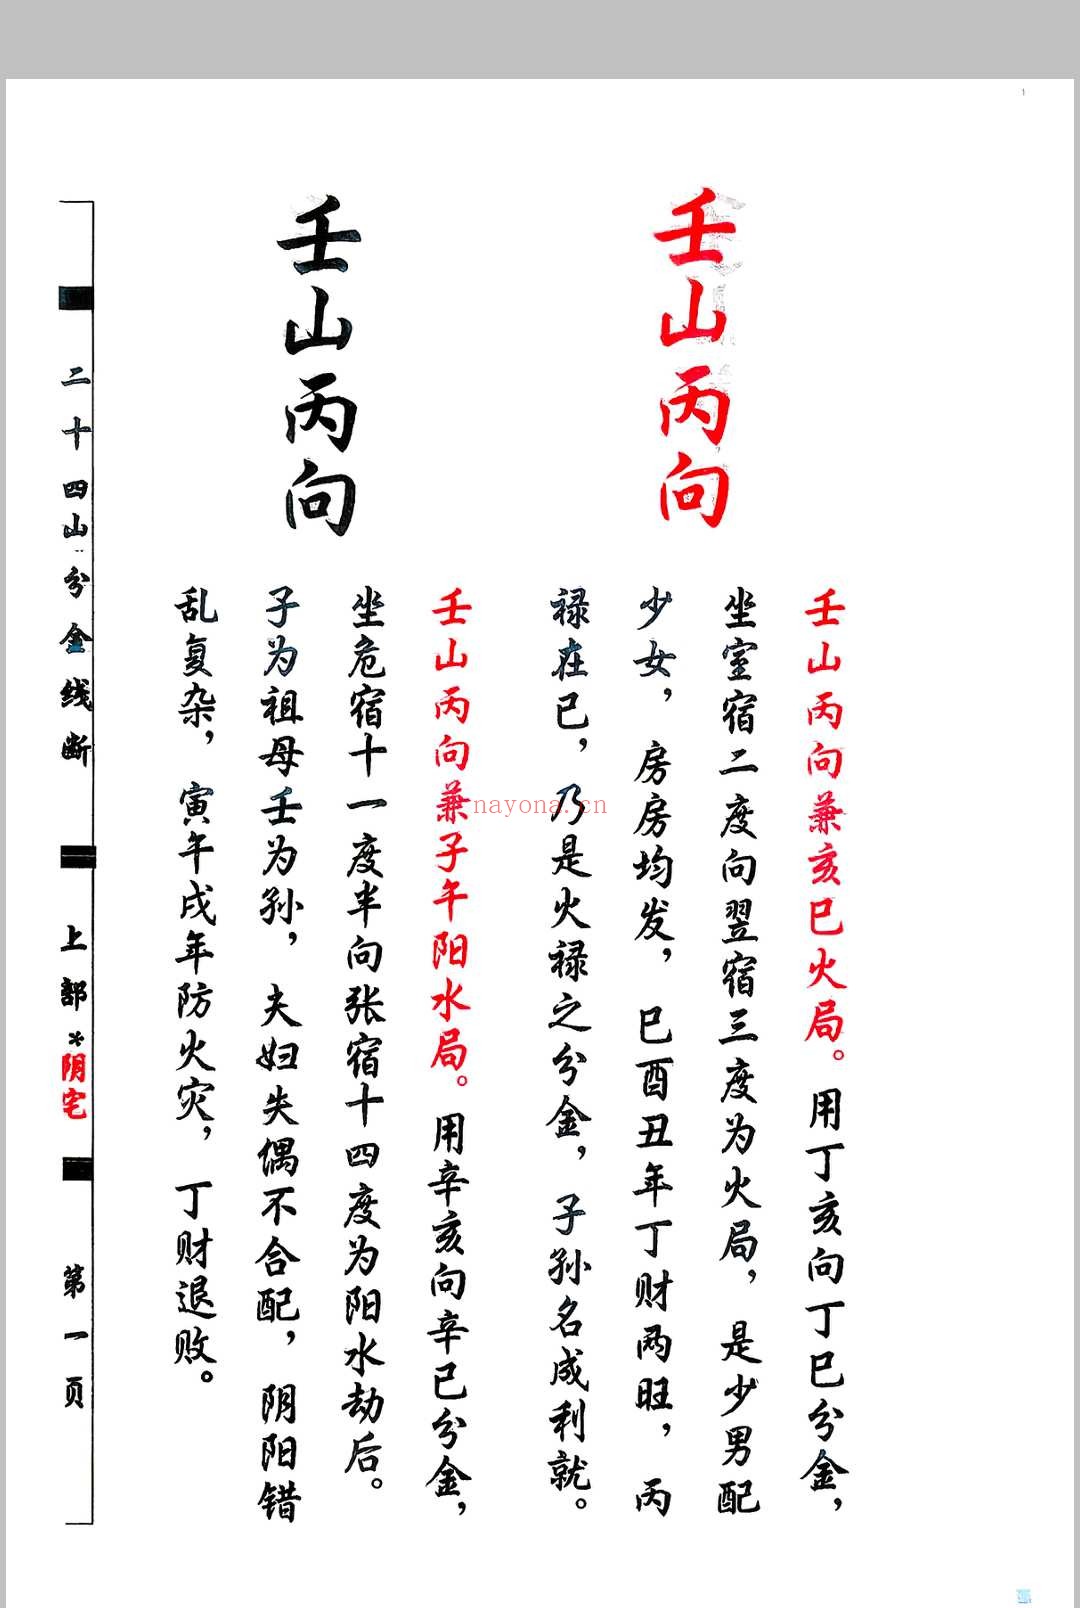 1
壬山丙向
壬山丙向兼亥巳火局。用丁亥向丁巳分金，
坐室宿二度向翌宿三度为火局，是少男配
少女，房房均发，巳酉丑年丁财两旺，丙
禄在巳，乃是火禄之分金，子孙名成利就。
壬山丙向
壬山丙向兼子午阳水局。用辛亥向辛巳分金，
坐危宿十一度半向张宿十四度为阳水劫后。
子为祖母壬为孙，夫妇失偶不合配，阴阳错
乱复杂，寅午戌年防火灾，丁财退败。
二十四山分金线断
上部*阴宅
第一页
nayona.cn